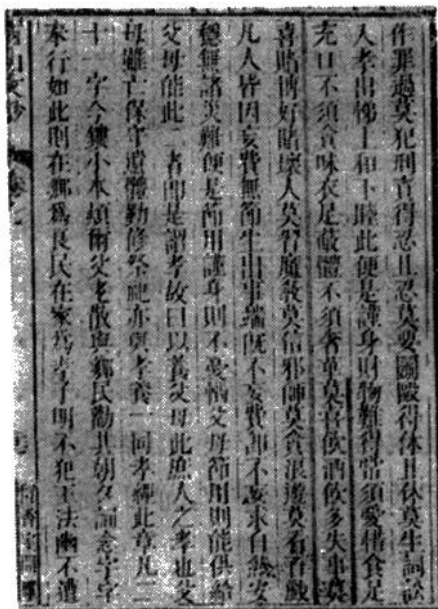 作罪過莫犯刑責得忍且忍莫要鬭毆得休且休莫生詞訟
入孝出悌上和下睦此便是謹身財物難得常須愛惜食足
充口不須貪味衣足蔽體不須奢華莫喜飲酒飲多失事莫
喜賭博好賭壞人莫習魔教莫信邪師莫貪浪遊莫看百戲
凡人皆因妄費無節生出事端既不妄費即不妄求自然安
穩無諸災難便是節用謹身則不憂惱父母節用則能供給
父母能此二者即是謂孝故曰以養父母此庶人之孝也父
母雖亡保守遺體勤修祭祀亦與孝養一同孝經此章凡二
十一字今鏤小本煩爾父老散與鄉民勸其朝夕誦念字字
奉行如此則在鄉爲良民在家爲孝子明不犯王法幽不遭
山文鈔